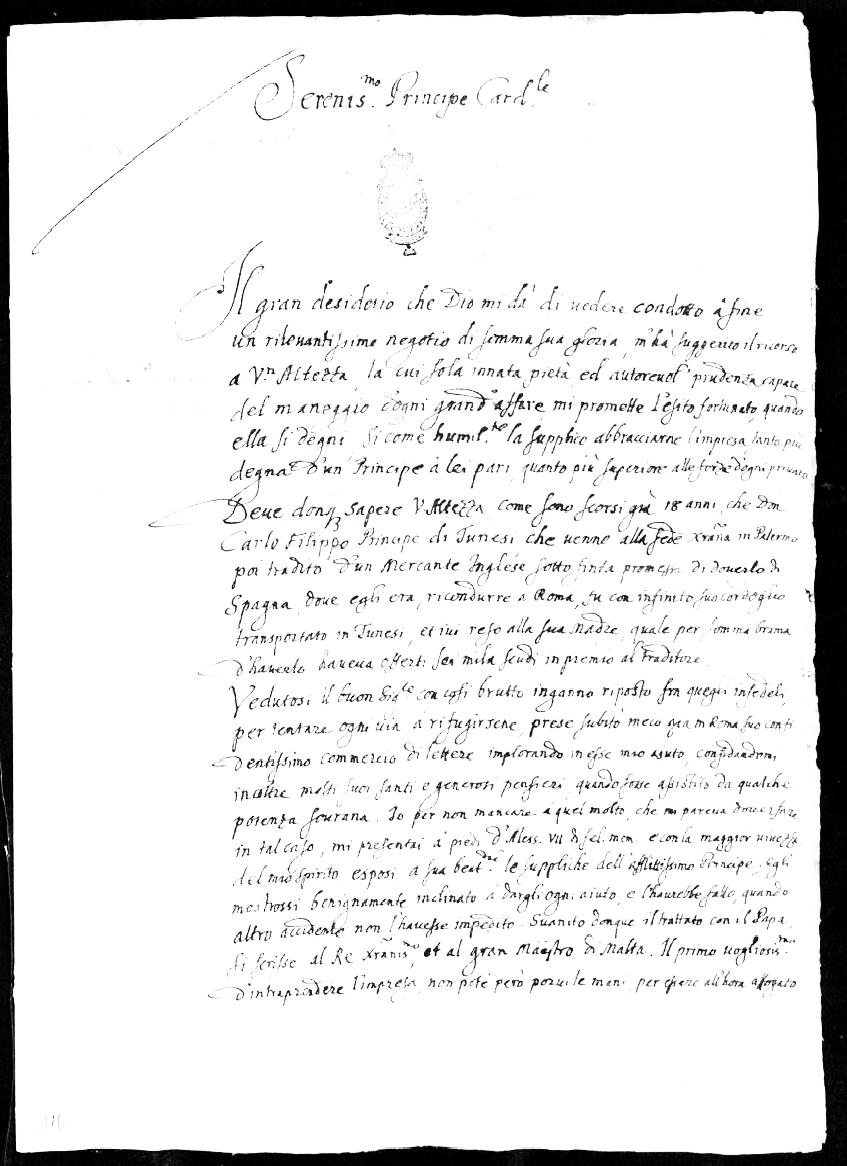 Serenis.mo Principe Card.le
Il gran desiderio che Dio mi dà di uedere condotto à fine
un rileuantissimo negotio di somma sua gloria, m'hà suggerito il ricorso
a V.ra Altezza, la cui sola innata pietà ed autoreuol' prudenza capace
del maneggio d'ogni grand'affare, mi promette l'esito fortunato, quando
ella si degni si come humil.te la supplico abbracciarne l'impresa, tanto più
degna d'un Principe à lei pari, quanto più superiore alle forze d'ogni priuato
Deue donq sapere V Altezza come sono scorsi già 18 anni, che Don
Carlo Filippo Principe di Tunesi che uenne alla fede Xrãna in Palermo
poi tradito d'un Mercante Inglése sotto finta promessa di douerlo di
Spagna, doue egli era, ricondurre a Roma, fu con infinito suo cordoglio
transportato in Tunesi, et iui reso alla sua Madre, quale per somma brama
d'hauerlo haueua offerti sei mila scudi in premio al traditore.
Vedutosi il buon Sig.re con cosi brutto inganno riposto fra quegli infedeli,
per tentare ogni uia di rifugirsene, prese subito meco quà in Roma suo confi
dentissimo commercio di lettere implorando in esse mio aiuto, confidandomi
inoltre molti suoi santi e generosi pensieri, quando fosse assistito da qualche
potenza sourana. Io per non mancare à quel molto, che mi pareua douer fare
in tal caso, mi presentai à piedi d'Aless. VII di fel. mem. e con la maggior uiuezza
del mio spirito esposi a sua beat.ne le suppliche dell'afflittissimo Principe. Egli
mostrossi benignamente inclinato à dargli ogni aiuto, e l'haurebbe fatto, quando
altro accidente non l'hauesse impedito. Suanito donque il trattato con il Papa,
si scrisse al Re Xrãnis.mo, et al gran Maestro di Malta. Il primo uogliosis.mo
d'intraprendere l'impresa, non potè però porui le mani per essere all'hora